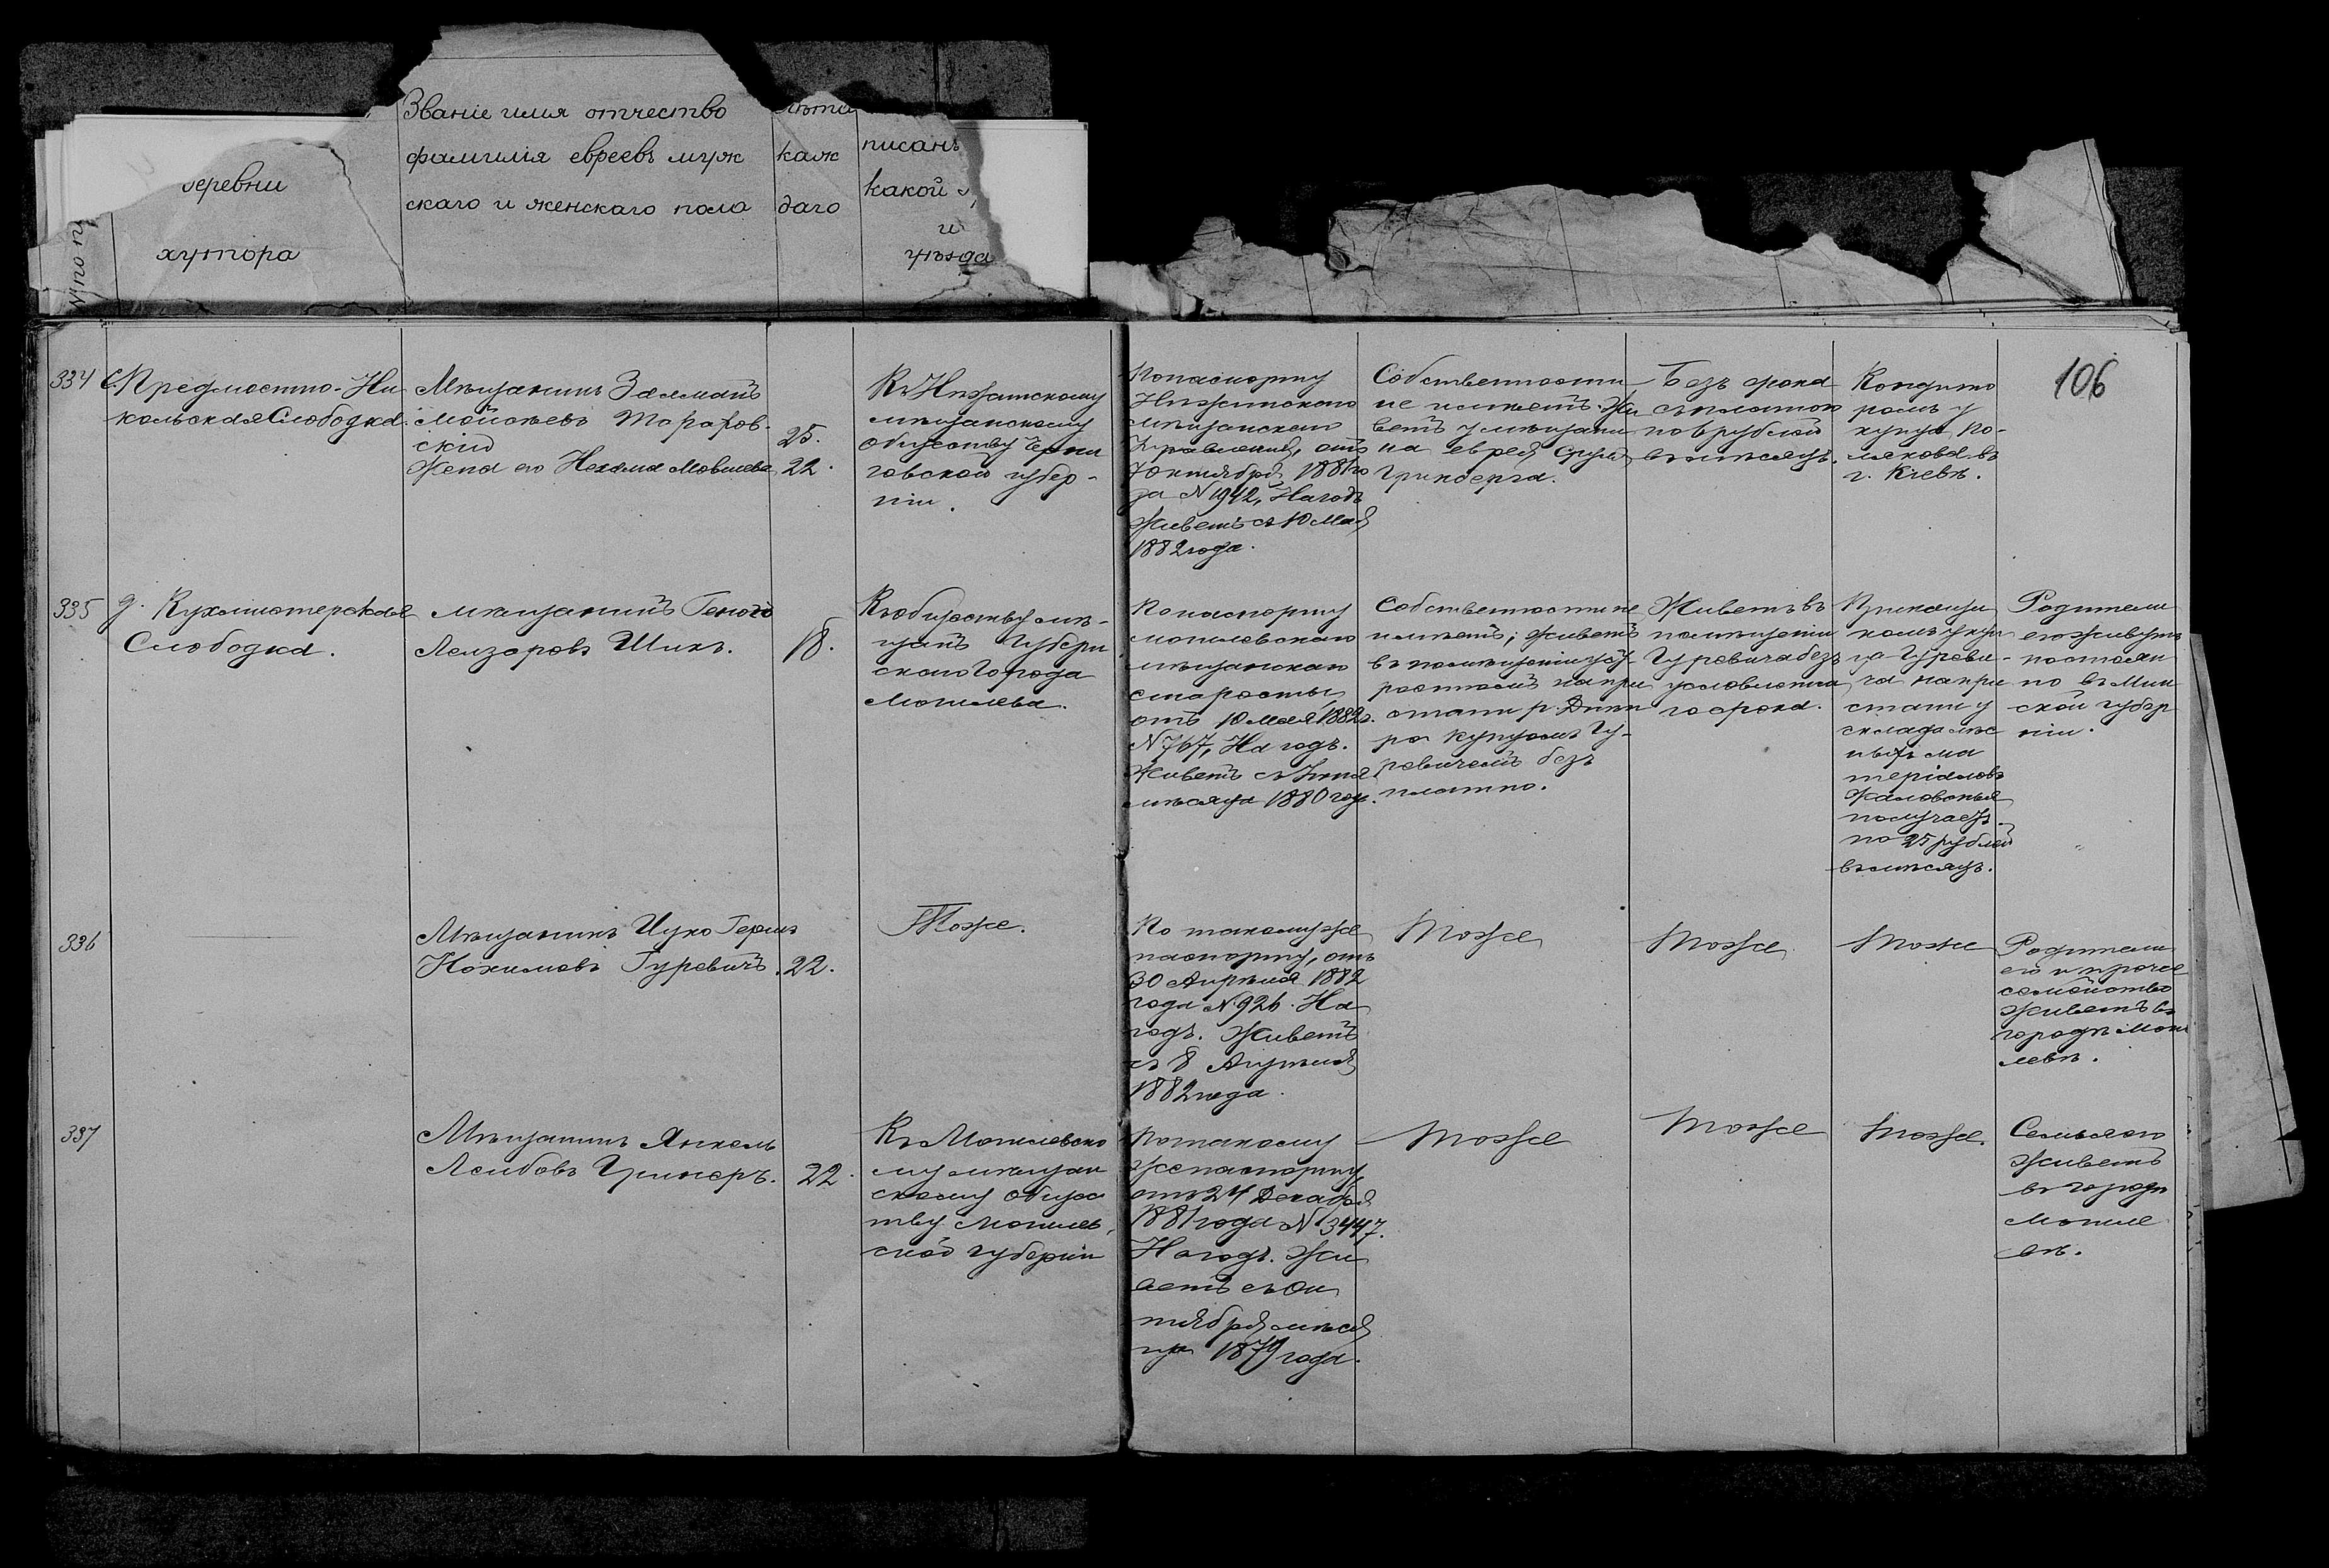 Званіе имя отчество
фамилія евреевъ муж
скаго и женскаго пола
каж
даго
писанъ
какой
и
уѣзда
деревни
хутора
№ по п
106
334
С. Предмостно-Ни
кольская Слободка.
Мѣщанинъ Залманъ
Мойсѣевъ Тараров-
скій
Жена его Нехама Мовшева
25.
22.
Къ Нѣжинскому
мѣщанскому
обществу Черни
говской губер-
ніи.
По паспорту
Нѣжинскаго
мѣщанскаго
Управленія, отъ
7 Октября 1881 го
за № 1942, На годъ
Живетъ съ 10 Мая
1882 года.
Собственности
не имѣетъ. Жи
ветъ у мѣщани
на еврея Сруля
Гринберга.
Безъ срока
съ платою
по 8 рублей
въ мѣсяцъ.
Кондито
ромъ у
купца По-
лякова въ
г. Кіевѣ.
335
д. Кухмистерская
Слободка.
мѣщанинъ Генохъ
Лейзеровъ Шикъ.
18.
Къ обществу мѣ-
щанъ Губерн
скаго Города
Могилева.
По паспорту
могилевскаго
мѣщанскаго
старосты
отъ 10 Мая 1882 г.
№ 767, На годъ.
Живетъ съ Іюня
мѣсяца 1880 года.
Собственности не
имѣетъ; живетъ
въ помѣщеніи
на при
стани р. Днѣп
ра купцомъ Гу-
ревичемъ без
платно.
Живетъ въ
помѣщеніи
Гуревича безъ
условлена
го срока.
Прикащи
комъ у куп
ца Гуреви-
ча на при
стани у
склада лѣс
ныхъ ма
теріаловъ
Жалованья
получаетъ
по 25 рублей
въ мѣсяцъ.
Родители
его живутъ
постоян
но въ Мин
ской губер
ніи.
336
Мѣщанинъ Ицко Гершъ
Нохимовъ Гуревичъ.
22.
Тоже.
По такому же
паспорту, отъ
30 Апрѣля 1882
года № 926. На
годъ. Живетъ
съ 8 Апрѣля
1882 года.
Тоже
Тоже
Тоже
Родители
его и прочее
семейство
живетъ въ
городѣ Моги
левѣ.
337
Мѣщанинъ Янкель
Лейбовъ Цринеръ.
22.
Къ Могилевско
му мѣщан
скому общес
тву Могилев
ской губерніи
По такому
же паспорту
отъ 24 Декабря
1881 года № 3447.
На годъ. Жи
ветъ съ Ок
тября мѣся
ца 1879 года.
Тоже
Тоже
Тоже.
Семья его
живетъ
въ городѣ
Могиле
вѣ.